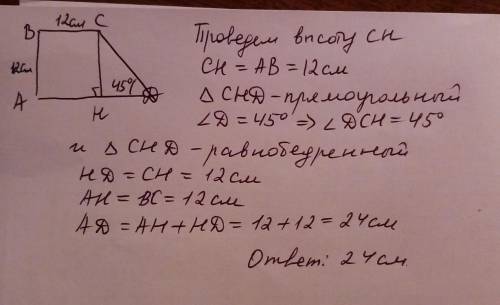 12см
B C
12см
45°
A H D
Проведем высоту CH
CH = AB = 12см
△ CHD - прямоугольный
∠D = 45° ⇒ ∠DCH = 45°
и △ CHD - равнобедренный
HD = CH = 12см
AH = BC = 12см
AD = AH + HD = 12 + 12 = 24см
Ответ: 24см